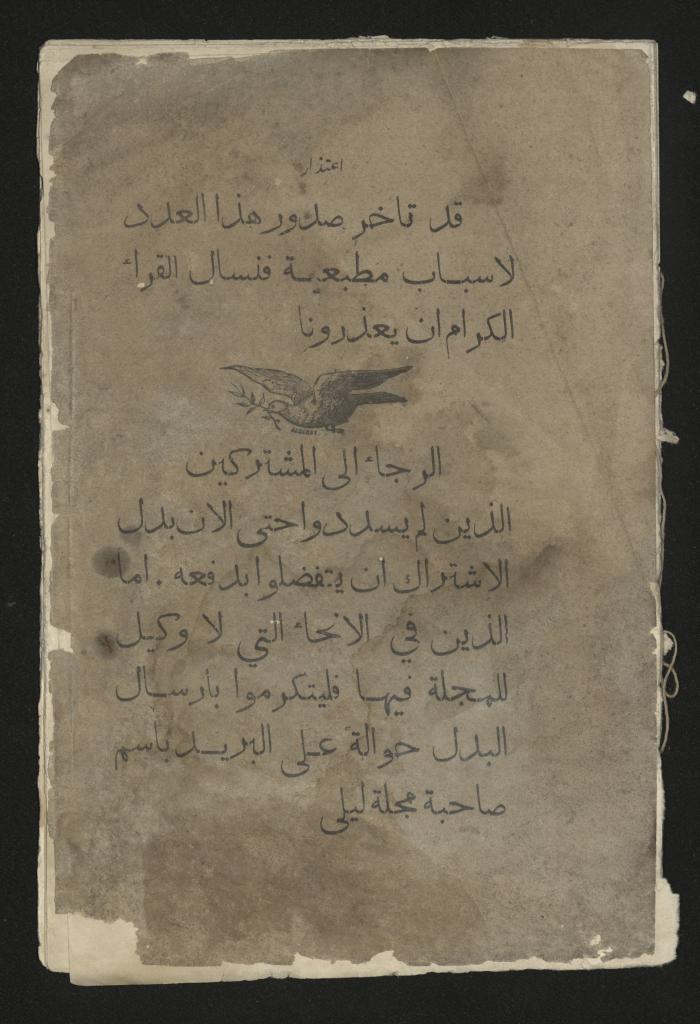 اعتذار
قد تاخر صدور هذا العدد
لاسباب مطبعية فنسال القراء
الكرام ان يعذرونا
الرجاء الى المشتركين
الذين لم يسددوا حتى الان بدل
الاشتراك ان يتفضلوا بدفعه . اما
الذين في الانحاء التي لا وكيل
للمجلة فيها فليتكرموا بارسال
البدل حوالة على البريد باسم
صاحبة مجلة ليلى